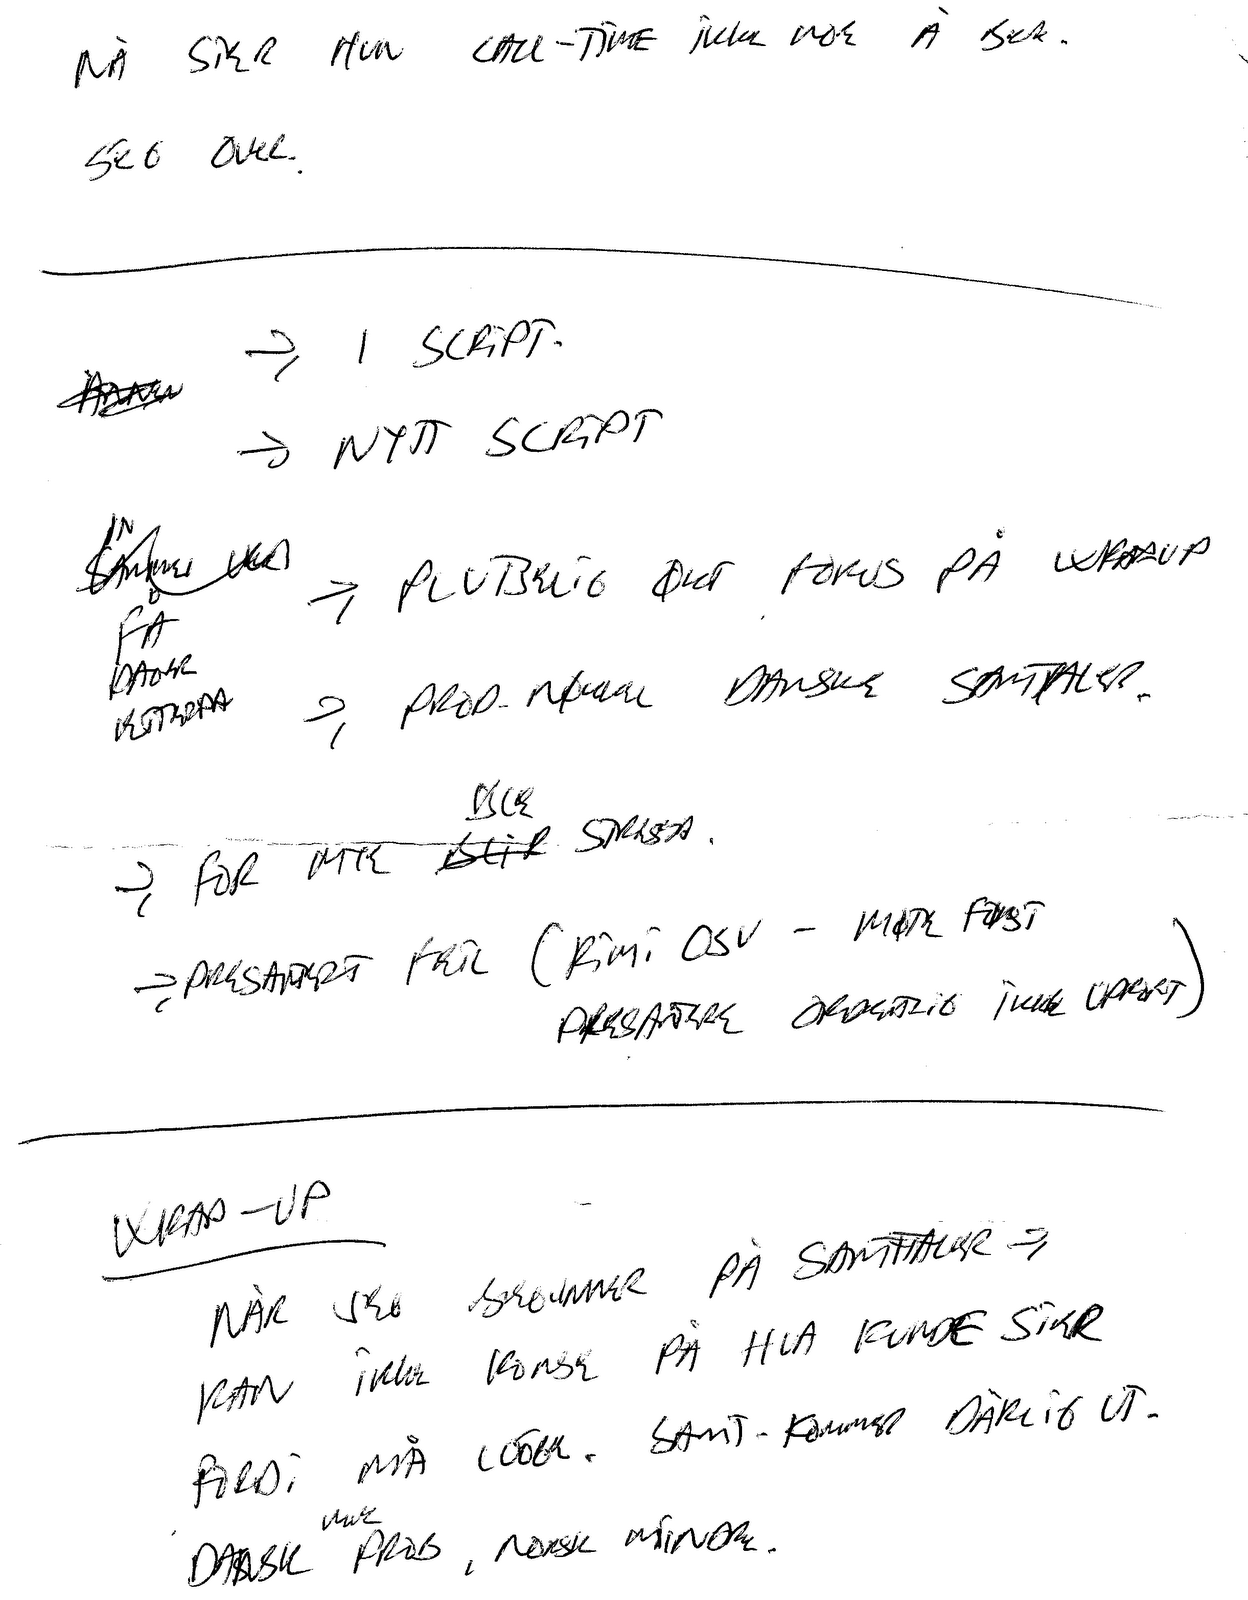 NÅ SIER HUN CALL-TIME IKKE NOE Å BEK.
SEG OVER.
⇒ 1 SCRIPT.
⇒ NYTT SCRIPT
IN
FÅ
DAGER
ETTERPÅ
⇒ PLUTSELIG ØKT FOKUS PÅ WRAPUP
⇒ PROD. NØKKEL DANSKE SAMTALER.
BLE
⇒ FOR MYE BLIR STRESSA.
⇒ PRESANTERT FEIL (RIMI OSV - MÅTE FØRST
PRESANTERE ORDENTLIG IKKE UPROFT)
WRAP-UP
NÅR JEG BEGYNNER PÅ SAMTALER ⇒
KAN IKKE KONSE PÅ HVA KUNDE SIER
FORDI MÅ LOGGE. SAMT. KOMMER DÅRLIG UT.
MYE
DANSK PROB, NORSK MINDRE.